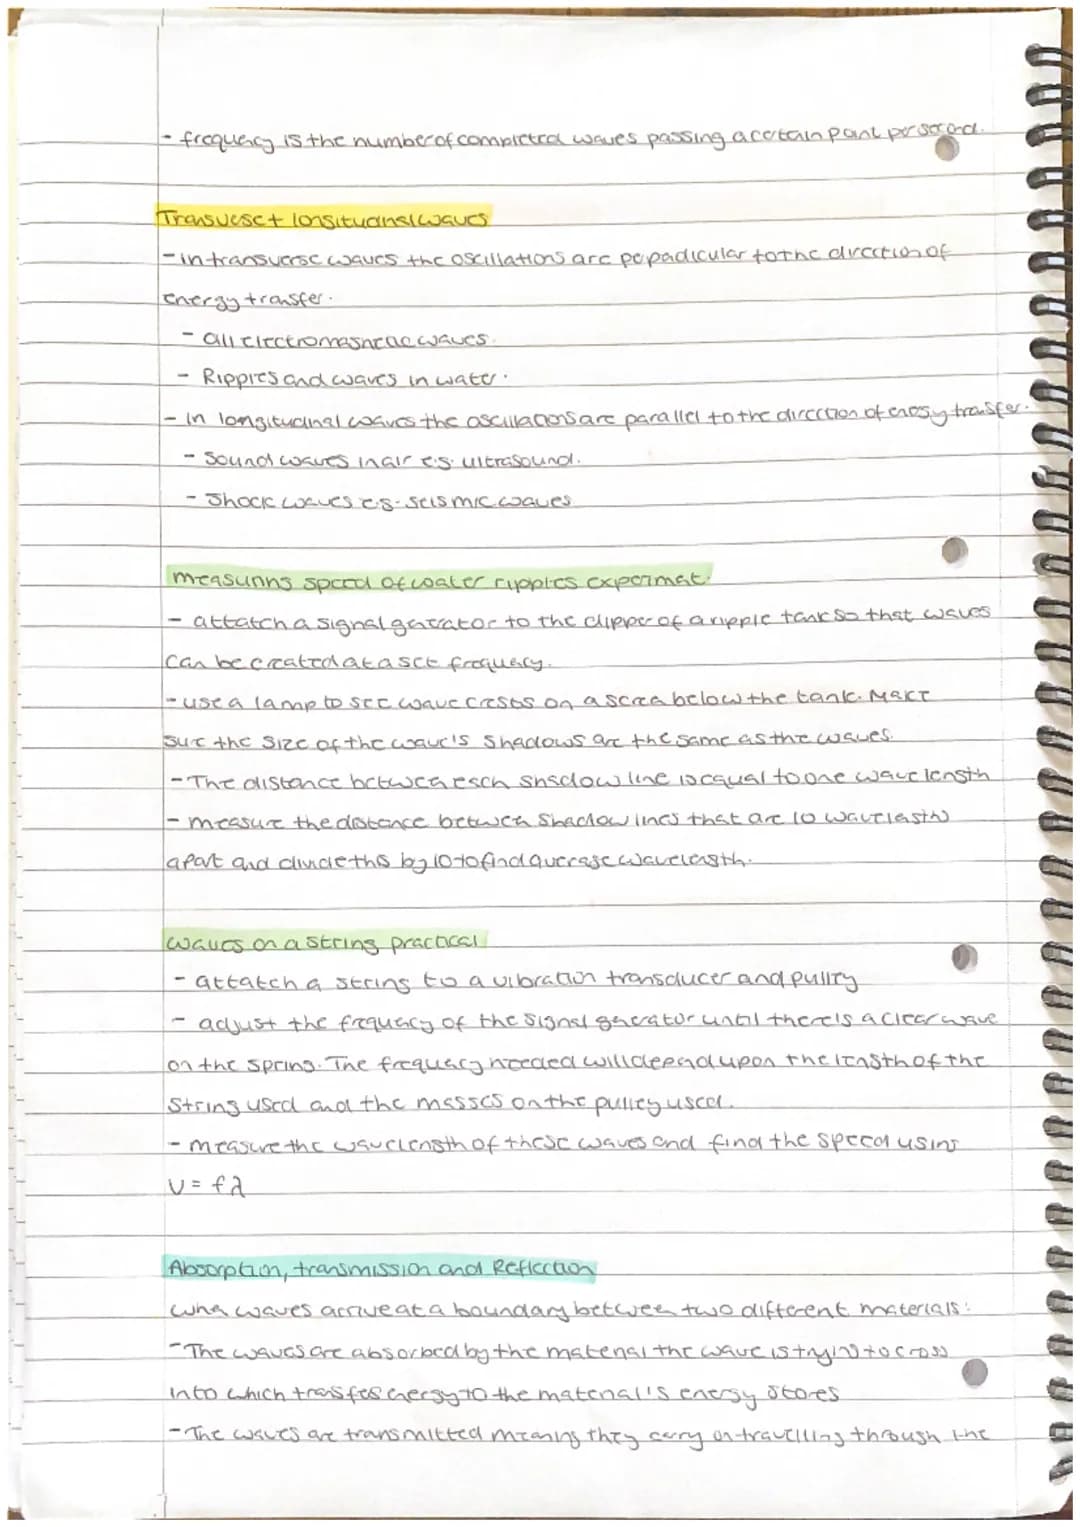 - frequency is the number of completed waves passing a certain point per second.
Transverse + longitudinal waves
- in transverse waves the oscillations are perpadicular to the direction of
energy transfer.
- all electromagnetic waves.
- Ripples and waves in water.
- in longitudinal waves the oscillations are parallel to the direction of energy transfer.
- Sound waves in air e.g. ultrasound.
- Shock waves e.g. seismic waves
measuring speed of water ripples experiment.
- attatch a signal generator to the dipper of a ripple tank so that waves
can be created at a set frequency.
- use a lamp to see wave crests on a screen below the tank. Make
sure the size of the wave's shadows are the same as the waves.
- The distance between each shadow line is equal to one wavelength
- measure the distance between shadow lines that are 10 wavelength
apart and divide this by 10 to find average wavelength.
waves on a string practical
- attatch a string to a vibration transducer and pulley
- adjust the frequency of the signal generator until there is a clear wave
on the spring. The frequency needed will depend upon the length of the
string used and the masses on the pulley used.
- measure the wavelength of these waves and find the speed using
V = fλ
Absorption, transmission and Reflection
when waves arrive at a boundary between two different materials:
- The waves are absorbed by the material the wave is trying to cross
into which transfers energy to the material's energy stores
- The waves are transmitted meaning they carry on travelling through the